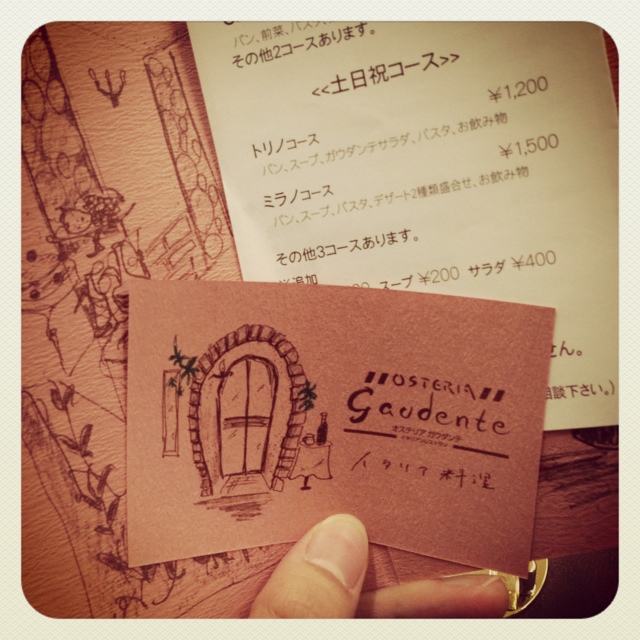 パン、前菜、パスタ、
その他2コースあります。
<<土日祝コース>>
¥1,200
トリノコース
パン、スープ、ガウダンテサラダ、パスタ、お飲み物
¥1,500
ミラノコース
パン、スープ、パスタ、デザート2種類盛合せ、お飲み物
その他3コースあります。
追加
スープ ¥200 サラダ ¥400
せん。
相談下さい。)
OSTERIA
Gaudente
オステリア ガウダンテ
イタリア料理